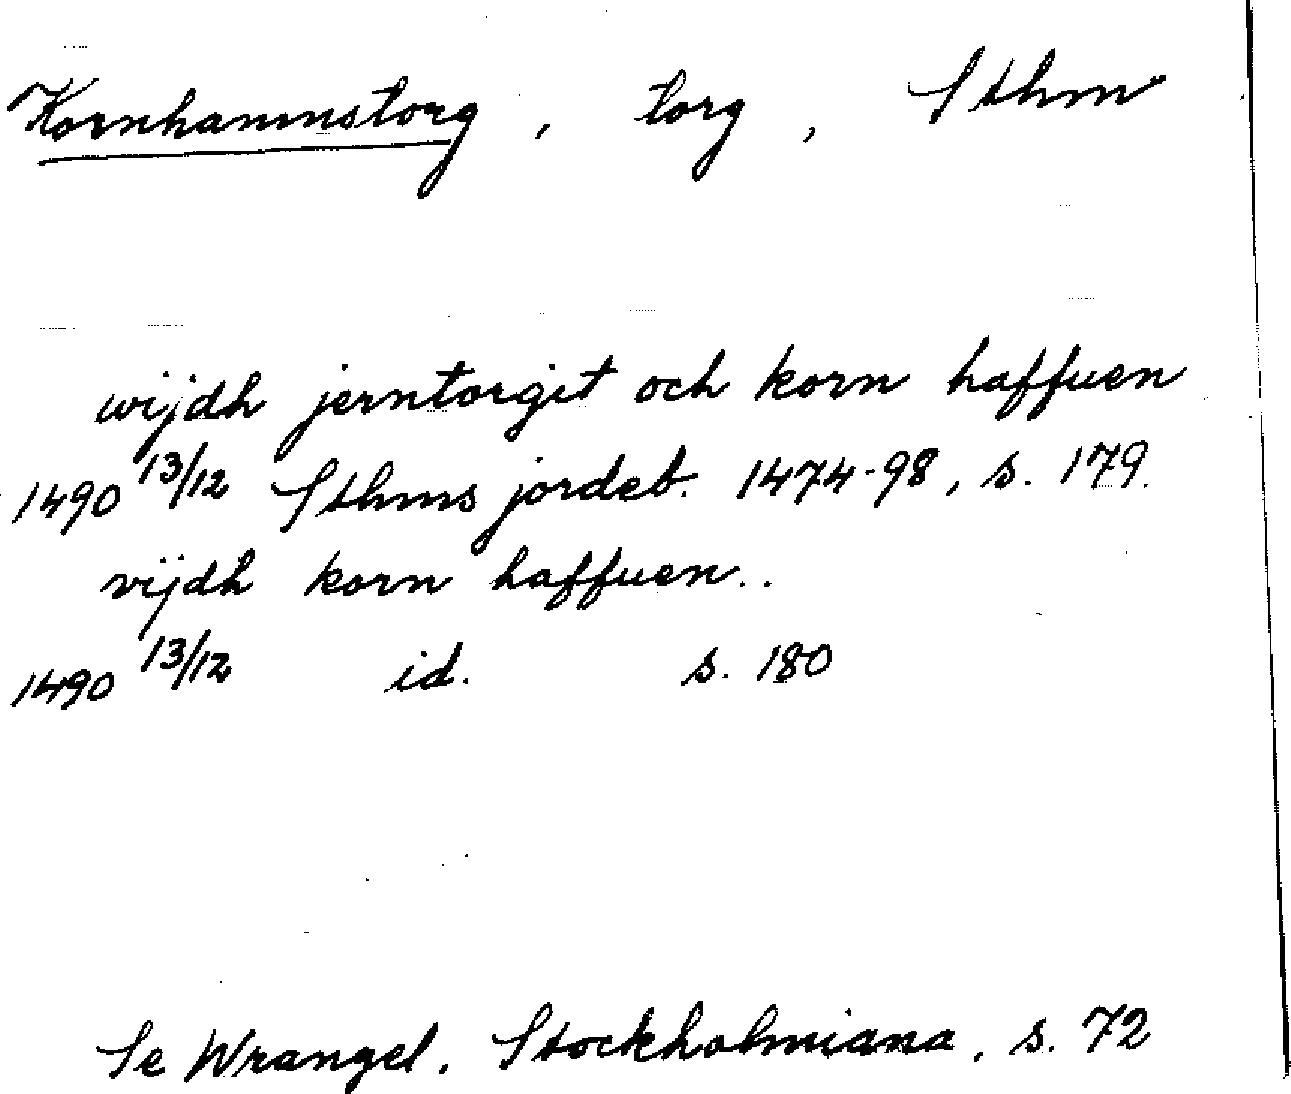 Kornhamnstorg, torg, Sthm
wijdh jerntorgit och korn haffuen
1490 13/12 Sthms jordeb. 1474-98, s. 179.
vijdh korn haffuen..
1490 13/12 id. s. 180
Se Wrangel. Stockholmiana, s. 72